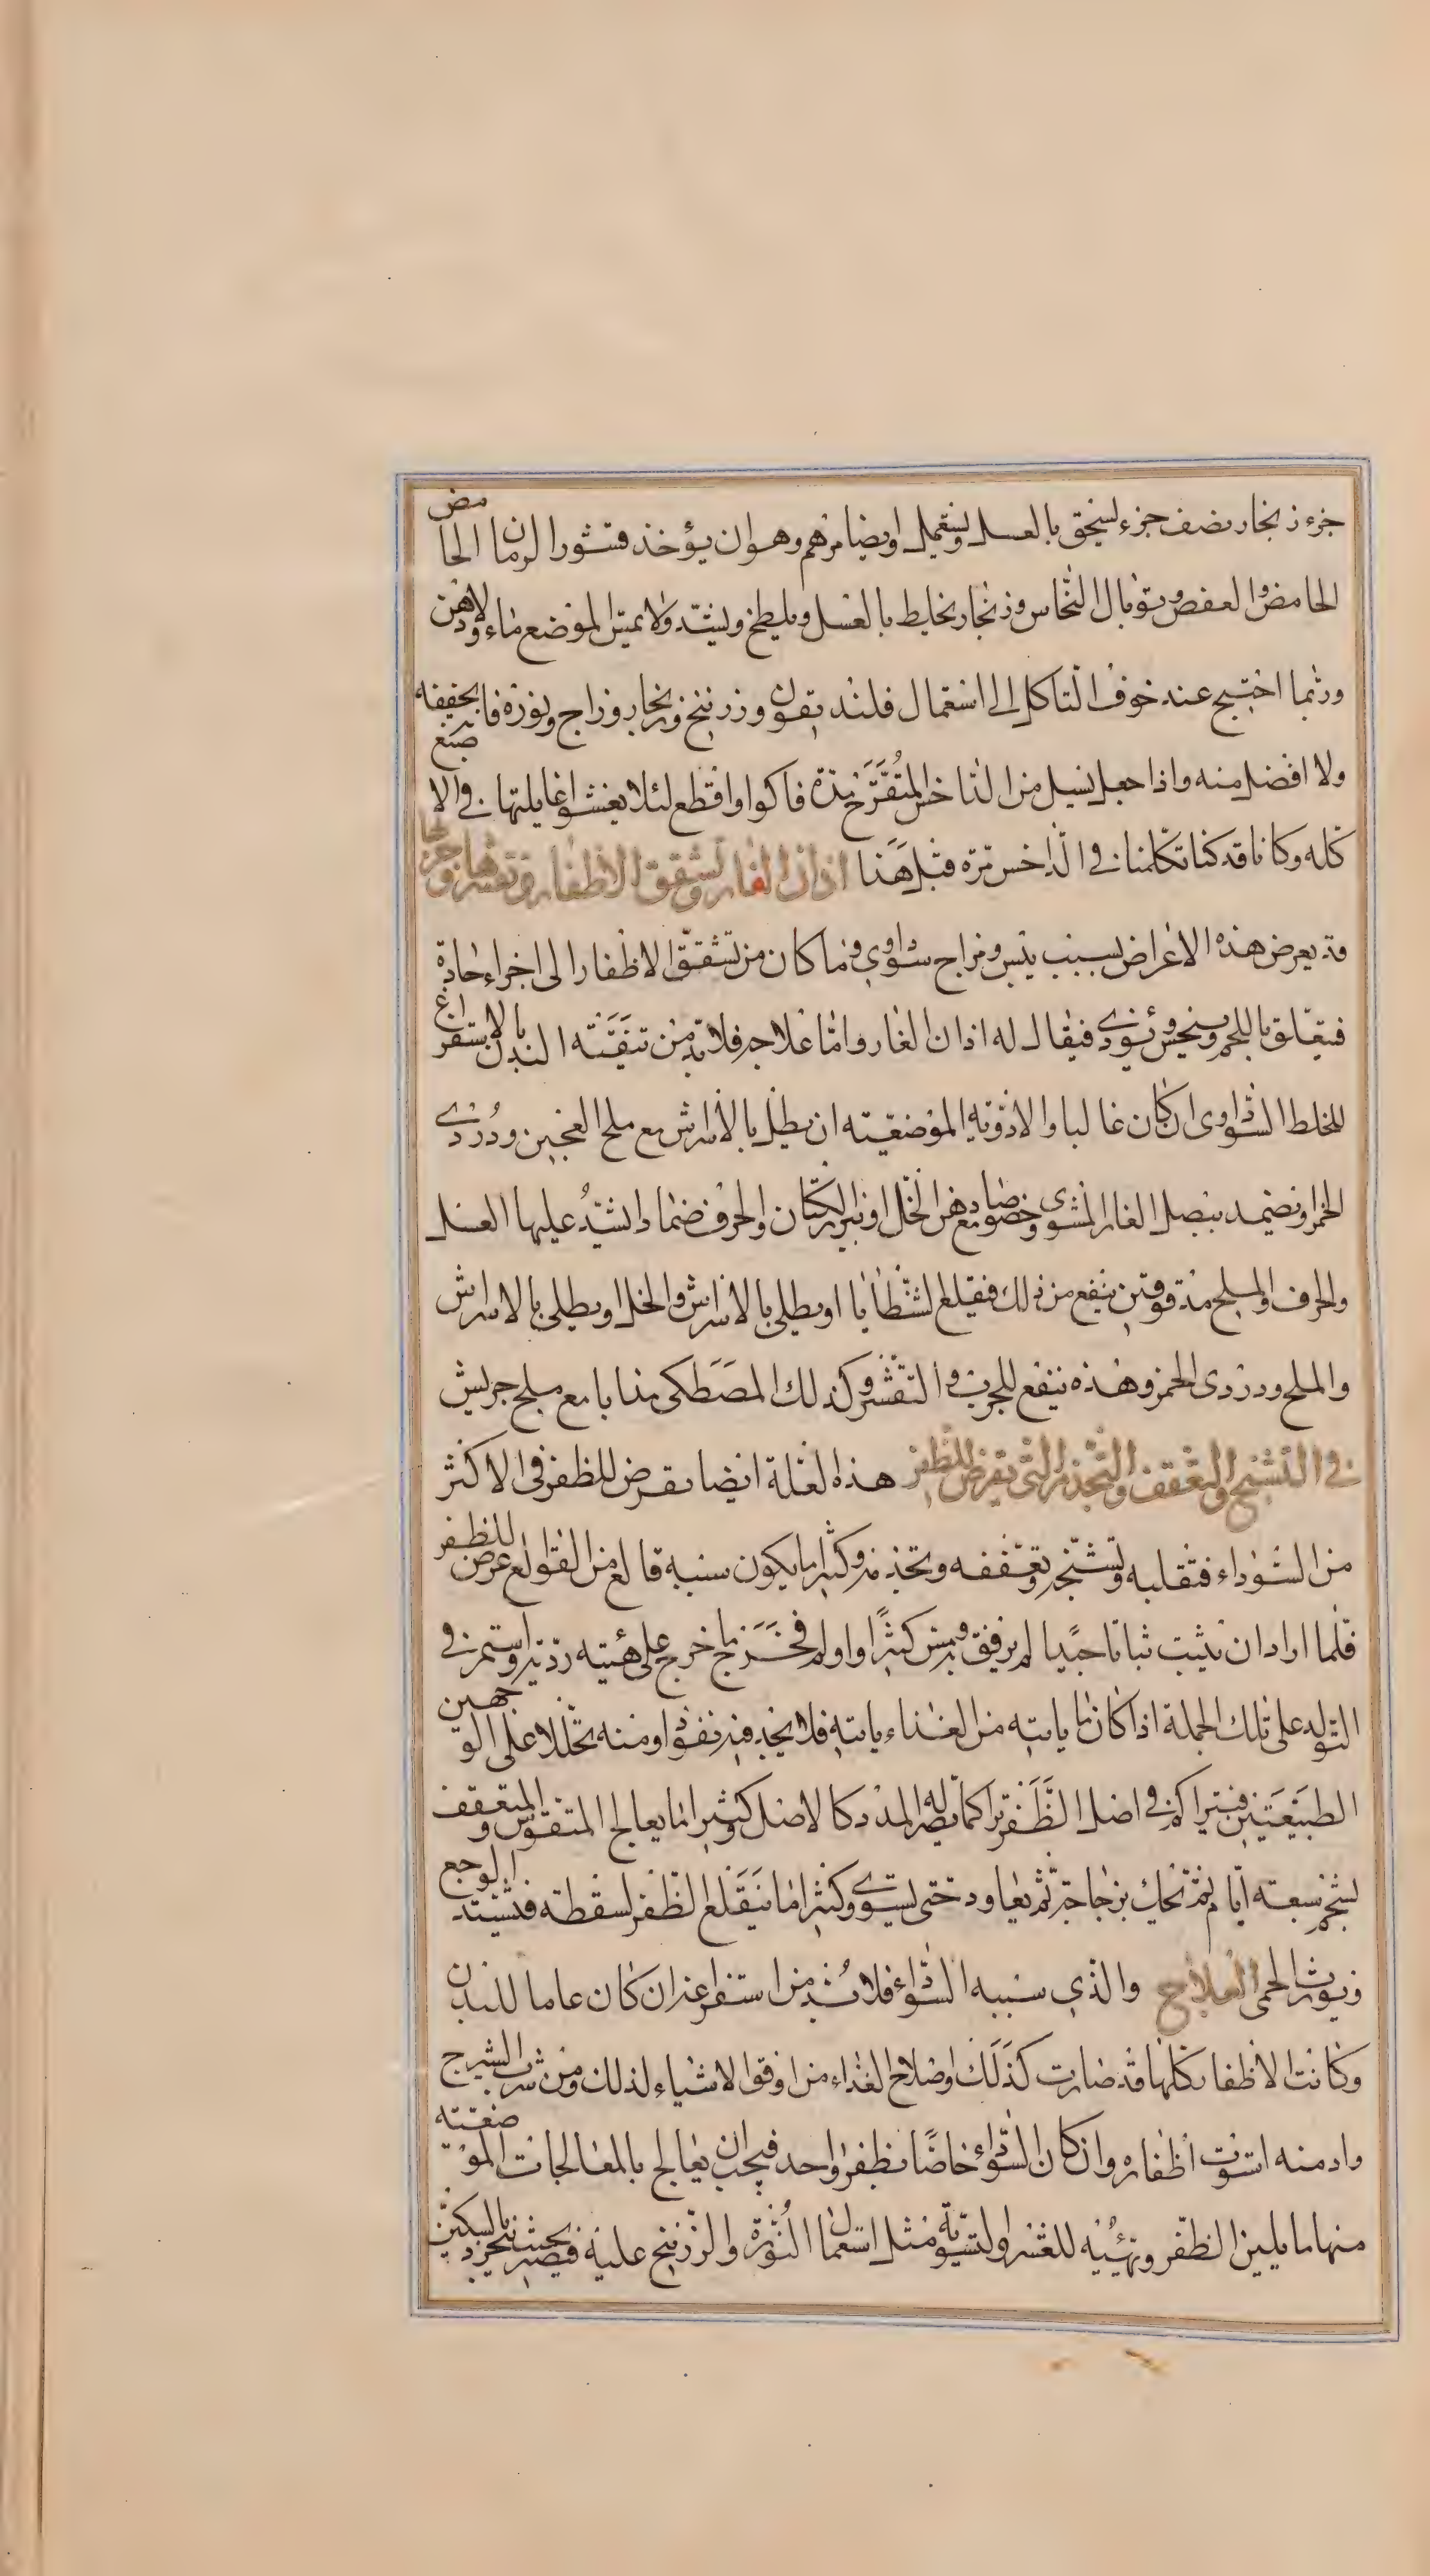 جزء زنجار نصف جزء يسحق بالعسل ويستعمل وايضا مرهم وهو ان يؤخذ قشور الرمان الحامض
الحامض والعفص وتوبال النحاس وزنجار يخلط بالعسل ويلطخ ويشد ولا يمس الموضع ماء ولا دهن
وربما احتيج عند خوف التاكل الى استعمال فلنديقون وزرنيخ وزنجار وزاج ونورة فانه يجففه
ولا افضل منه واذا جعل يسيل من الداخس المتقرح مدة فاكوا واقطع لئلا يفشوا غايلتها في الاصبع
كله وكانا قد كنا تكلمنا في الداخس مرة قبل هذا اذان الفار وتشقق الاظفار وتقشرها وجربها
قد يعرض هذه الاعراض بسبب يبس ومزاج سوداوي وما كان من تشقق الاظفار الى اجزاء حادة
فيتعلق باللحم وينخس ويؤذي فيقال له اذان الفار واما علاجه فلا بد من تنقية البدن بالاستفراغ
للخلط السوداوي ان كان غالبا والادوية الموضعية ان يطلى بالاسراش مع ملح العجين ودردي
الخمر او يضمد ببصل الفار المشوي وخصوصا مع دهن الخل او بزر الكتان والحرف ضمادا يشد عليها العسل
والحرف والملح مدقوقتين ينفع من ذلك فيقلع الشظايا او يطلى بالاسراش والخل او يطلى بالاسراش
والملح ودردي الخمر وهذه ينفع للجرب والتقشر وكذلك المصطكى مذابا مع ملح جريش
في التشنج والتعقف والتجذم التي يعرض للظفر هذه العلة ايضا يعرض للظفر في الاكثر
من السوداء فتقلبه وتشنجه وتعقفه وتجذمه وكثيرا ما يكون سببه قالع من القوالع عرض للظفر
فلما اراد ان ينبت نباتا جيدا لم يرفق به ومس كثيرا واولم فحزما خرج على هيئة ردية واستمر في
التولد على تلك الجملة اذا كان ما ياتيه من الغذاء ياتيه فلا يجد فيه نفوذا ومنه تحللا على الوجهين
الطبيعيين فيتراكم في اصل الظفر تراكما يصير له المدد كالاصل وكثيرا ما يعالج المتقوس والمتعقف
بشحم سبعة ايام ثم تحك بزجاجة ثم يعاود حتى يستوي وكثيرا ما ينقلع الظفر لسقطة فيشتد الوجع
ويورث الحمى العلاج والذي سببه السوداء فلا بد من استفراغه ان كان عاما للبدن
وكانت الاظفار كلها قد صارت كذلك واصلاح الغذاء من اوفق الاشياء لذلك ومن شرب الشيرج
وادمنه استوت اظفاره وان كان السوداء خاصا بظفر واحد فيجب ان يعالج بالمعالجات الموضعية
منها ما يلين الظفر ويهيئه للقشر والتسوية مثل استعمال النورة والزرنيخ عليه فيصير بحيث ينجرد بالسكين